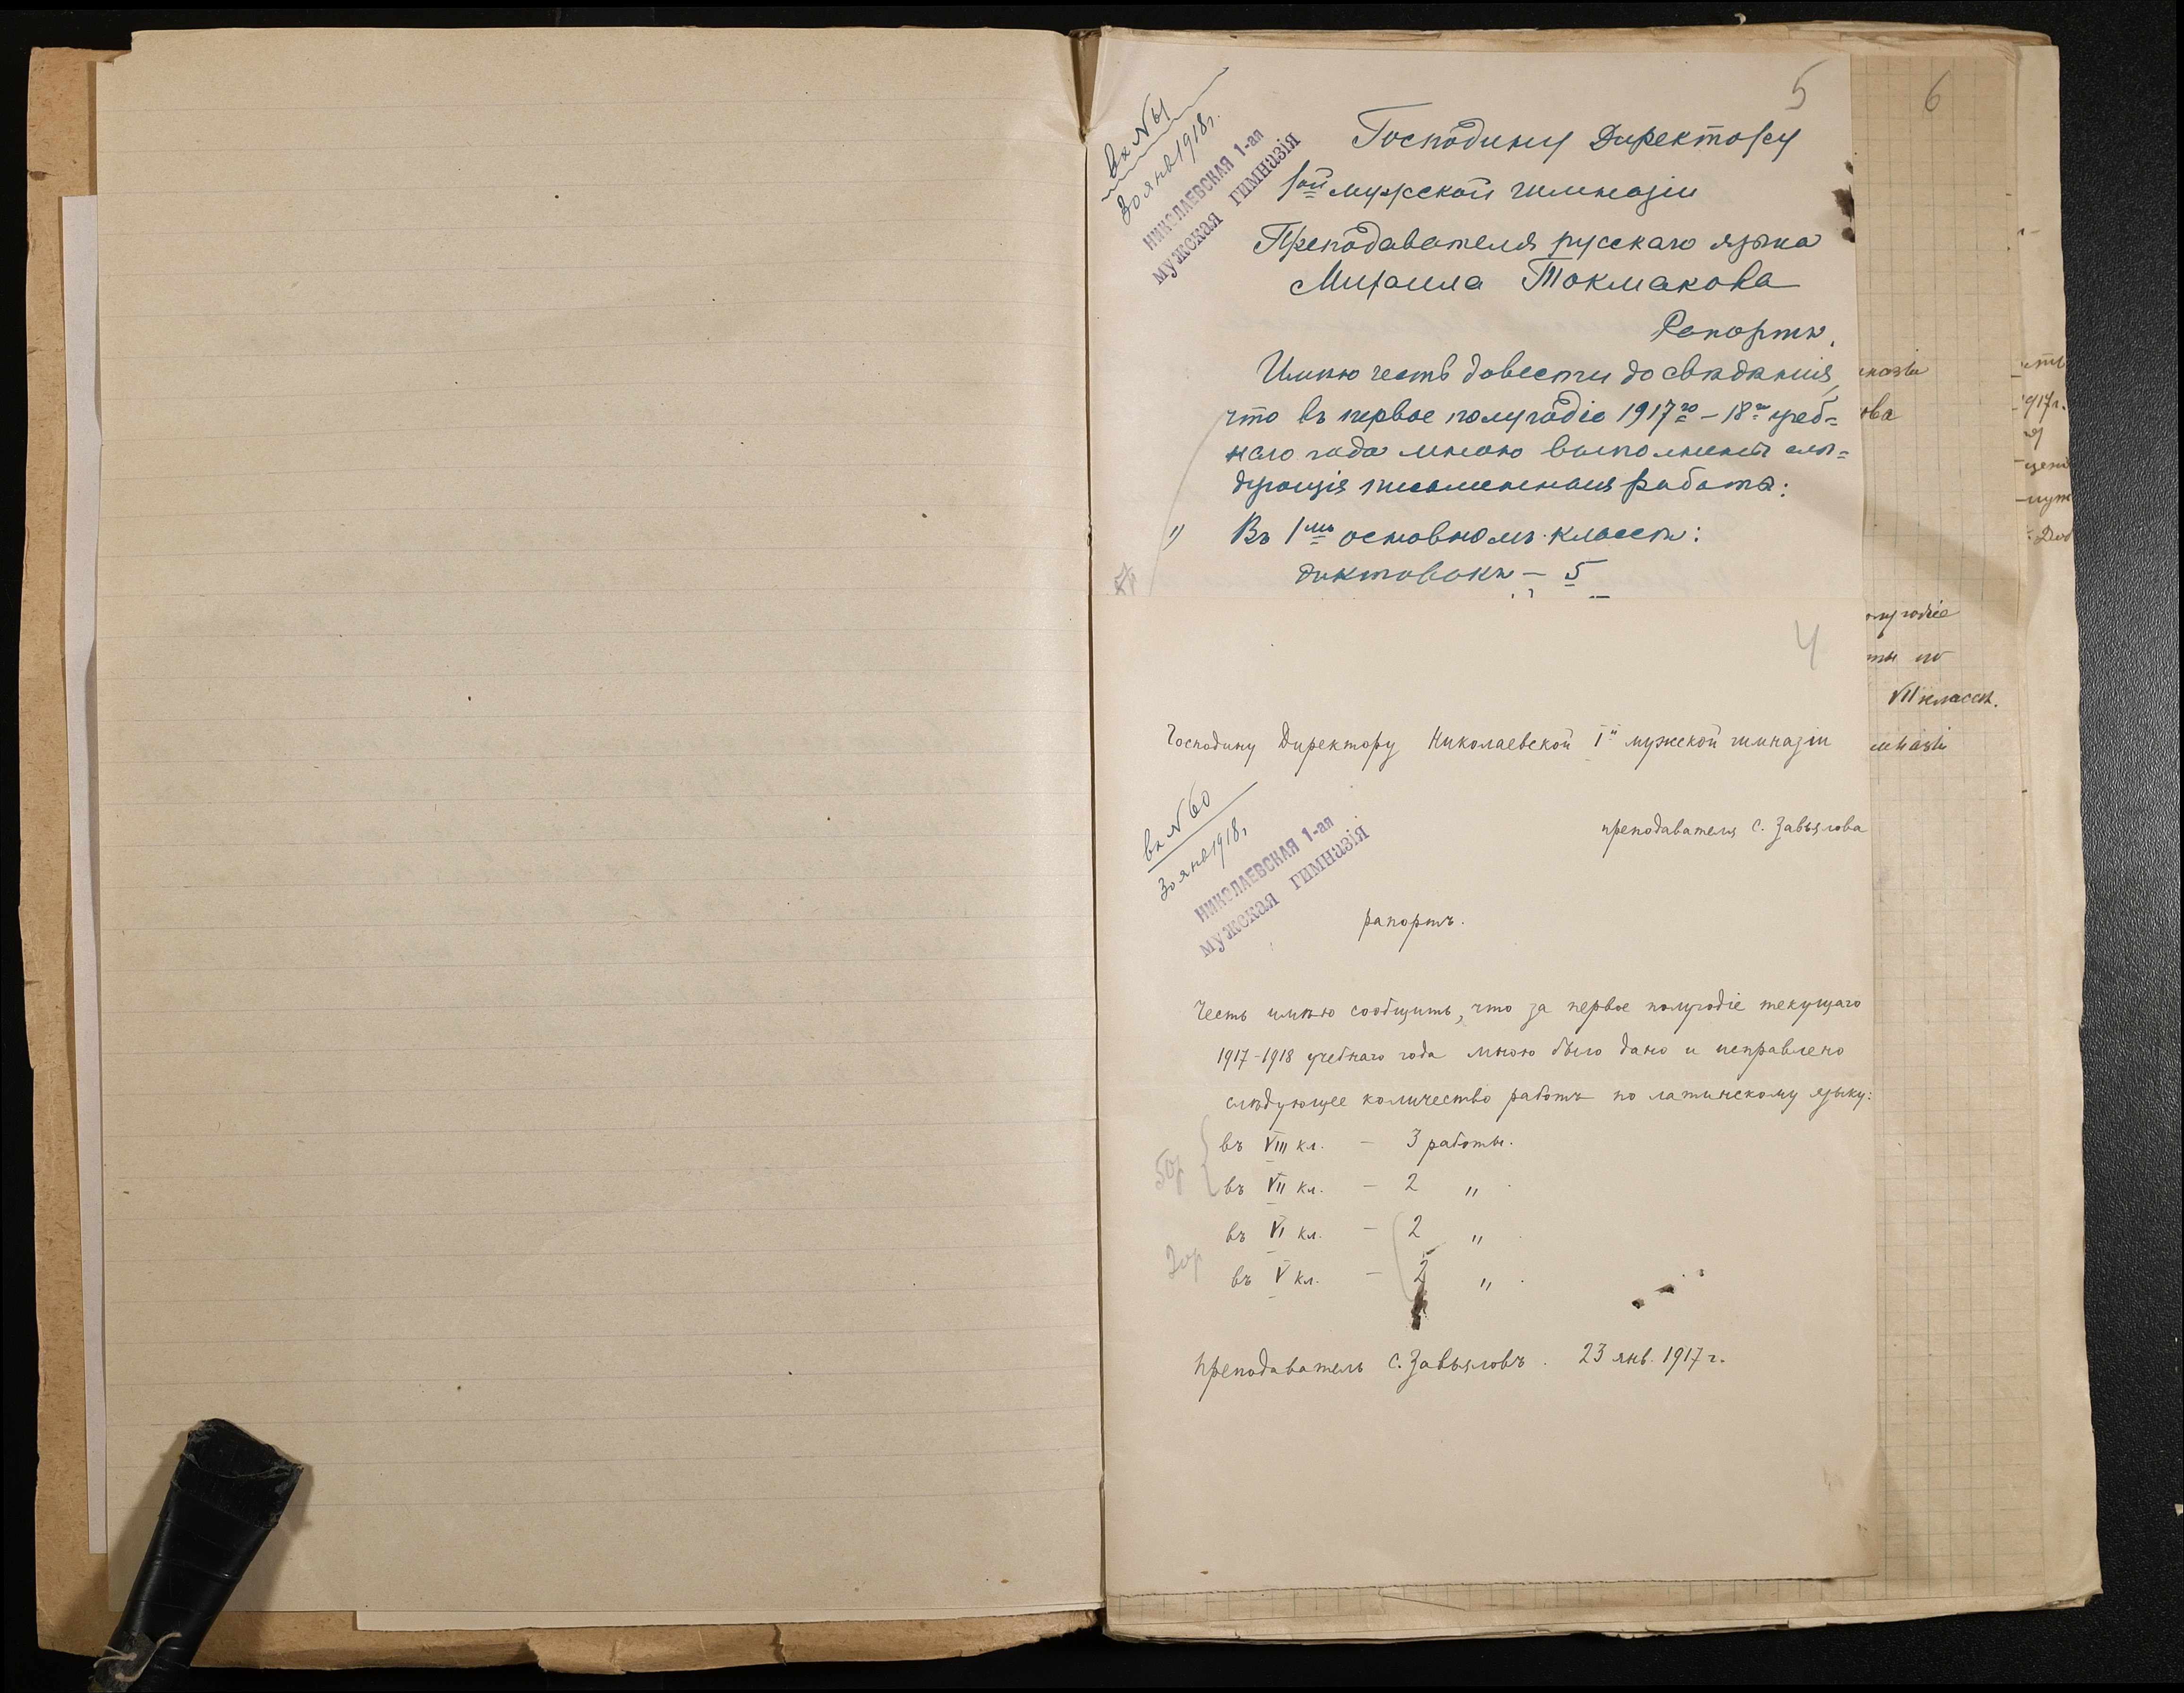 5
вх №61
30 янв 1918 г.
НИКОЛАЕВСКАЯ 1-ая
МУЖСКАЯ ГИМНАЗІЯ
Господину Директору
1ой мужской гимназіи
Преподавателя русскаго языка
Михаила Токмакова
Рапортъ.
Имѣю честь довести до свѣдѣнія,
что въ первое полугодіе 1917го – 18го учеб=
наго года мною выполнены слѣ=
дующія письменныя работы:
1) Въ 1мъ основномъ классѣ:
диктовокъ – 5
4
Господину Директору Николаевской Iй мужской гимназіи
вх №60
30 янв 1918 г.
НИКОЛАЕВСКАЯ 1-ая
МУЖСКАЯ ГИМНАЗІЯ
преподавателя С. Завьялова
рапортъ.
Честь имѣю сообщить, что за первое полугодіе текущаго
1917-1918 учебнаго года мною было дано и исправлено
слѣдующее количество работъ по латинскому языку:
въ VIII кл. – 3 работы.
50р
въ VII кл. – 2 "
въ VI кл. – 2 "
въ V кл. – 2 "
преподаватель С. Завьяловъ. 23 янв. 1917 г.
6
ова
VII классѣ.
1917 г.